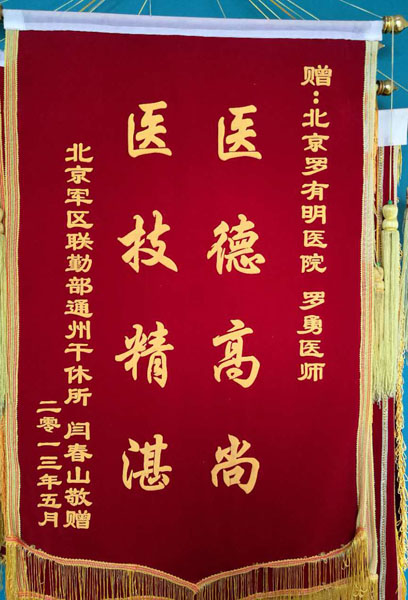 赠：北京罗有明医院 罗勇医师
医德高尚
医技精湛
北京军区联勤部通州干休所 闫春山敬赠
二零一三年五月